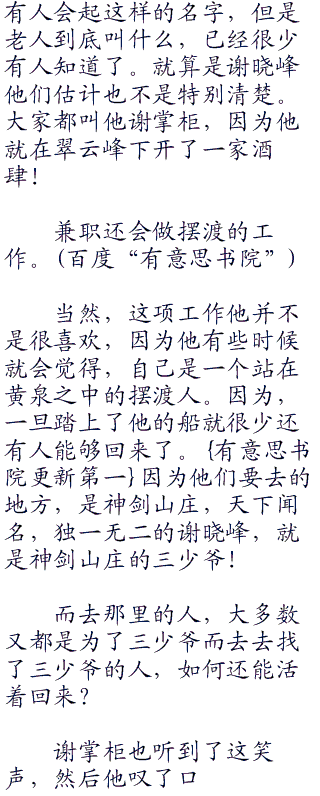 有人会起这样的名字，但是
老人到底叫什么，已经很少
有人知道了。就算是谢晓峰
他们估计也不是特别清楚。
大家都叫他谢掌柜，因为他
就在翠云峰下开了一家酒
肆！
兼职还会做摆渡的工
作。(百度“有意思书院”)
当然，这项工作他并不
是很喜欢，因为他有些时候
就会觉得，自己是一个站在
黄泉之中的摆渡人。因为，
一旦踏上了他的船就很少还
有人能够回来了。{有意思书
院更新第一}因为他们要去的
地方，是神剑山庄，天下闻
名，独一无二的谢晓峰，就
是神剑山庄的三少爷！
而去那里的人，大多数
又都是为了三少爷而去去找
了三少爷的人，如何还能活
着回来？
谢掌柜也听到了这笑
声，然后他叹了口